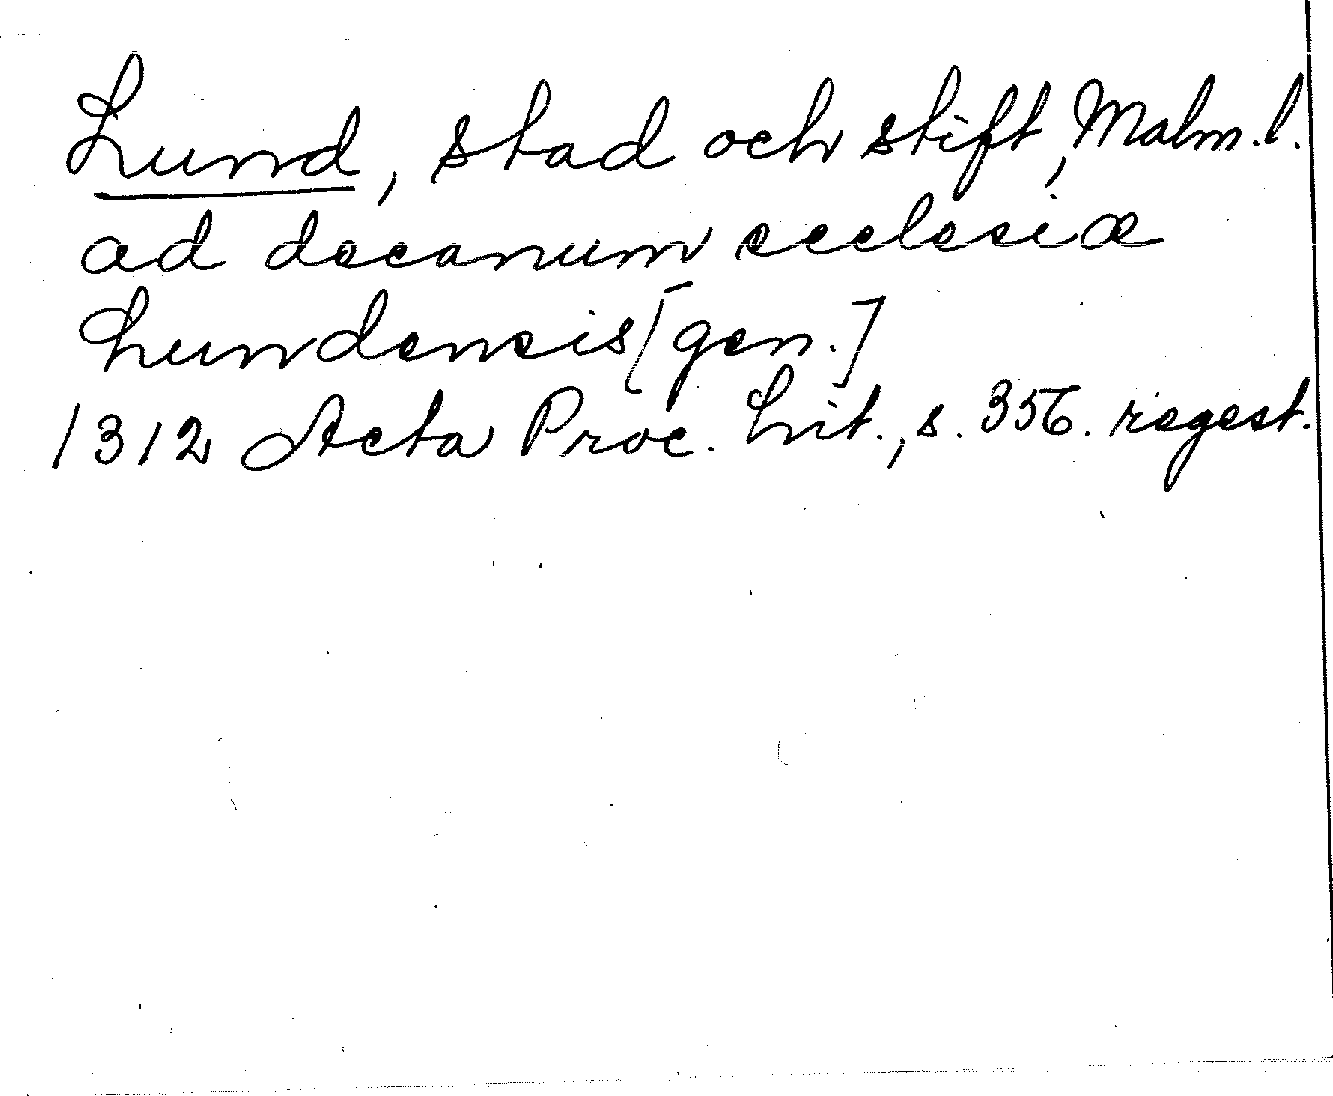 Lund, stad och stift, Malm. l.
ad decanum ecclesiæ
Lundensis [gen.]
1312 Acta Proc. Lit., s. 356. regest.